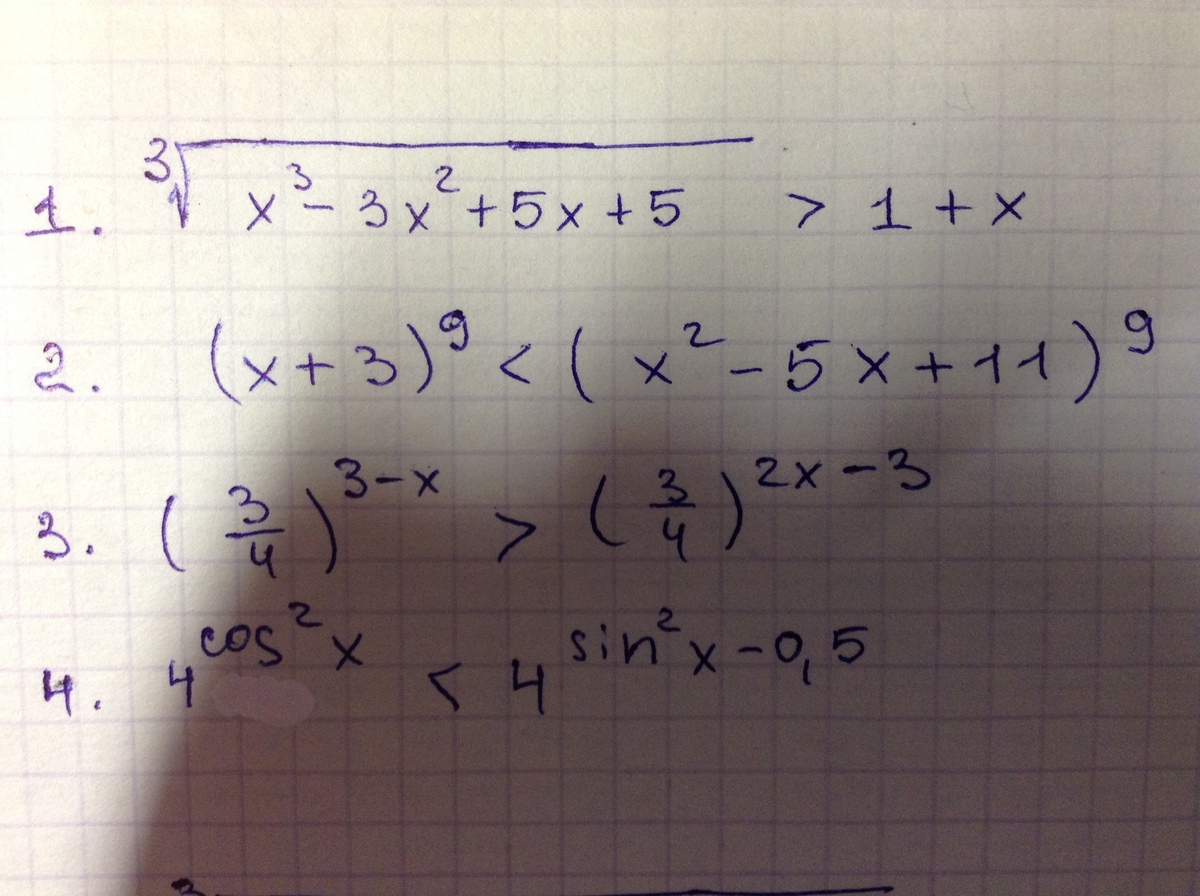 1. ∛(x³ - 3x² + 5x + 5) > 1 + x
2. (x + 3)⁹ < (x² - 5x + 11)⁹
3. (3/4)^(3-x) > (3/4)^(2x-3)
4. 4^(cos²x) < 4^(sin²x - 0,5)
3